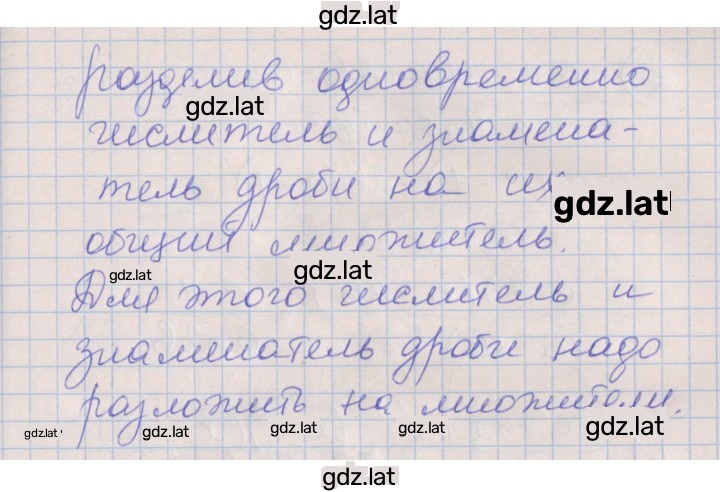 gdz.lat
разделив одновременно
gdz.lat
числитель и знамена-
тель дроби на их
gdz.lat
общий множитель.
gdz.lat gdz.lat
Для этого числитель и
знаменатель дроби надо
разложить на множители.
gdz.lat gdz.lat gdz.lat gdz.lat gdz.lat
gdz.lat